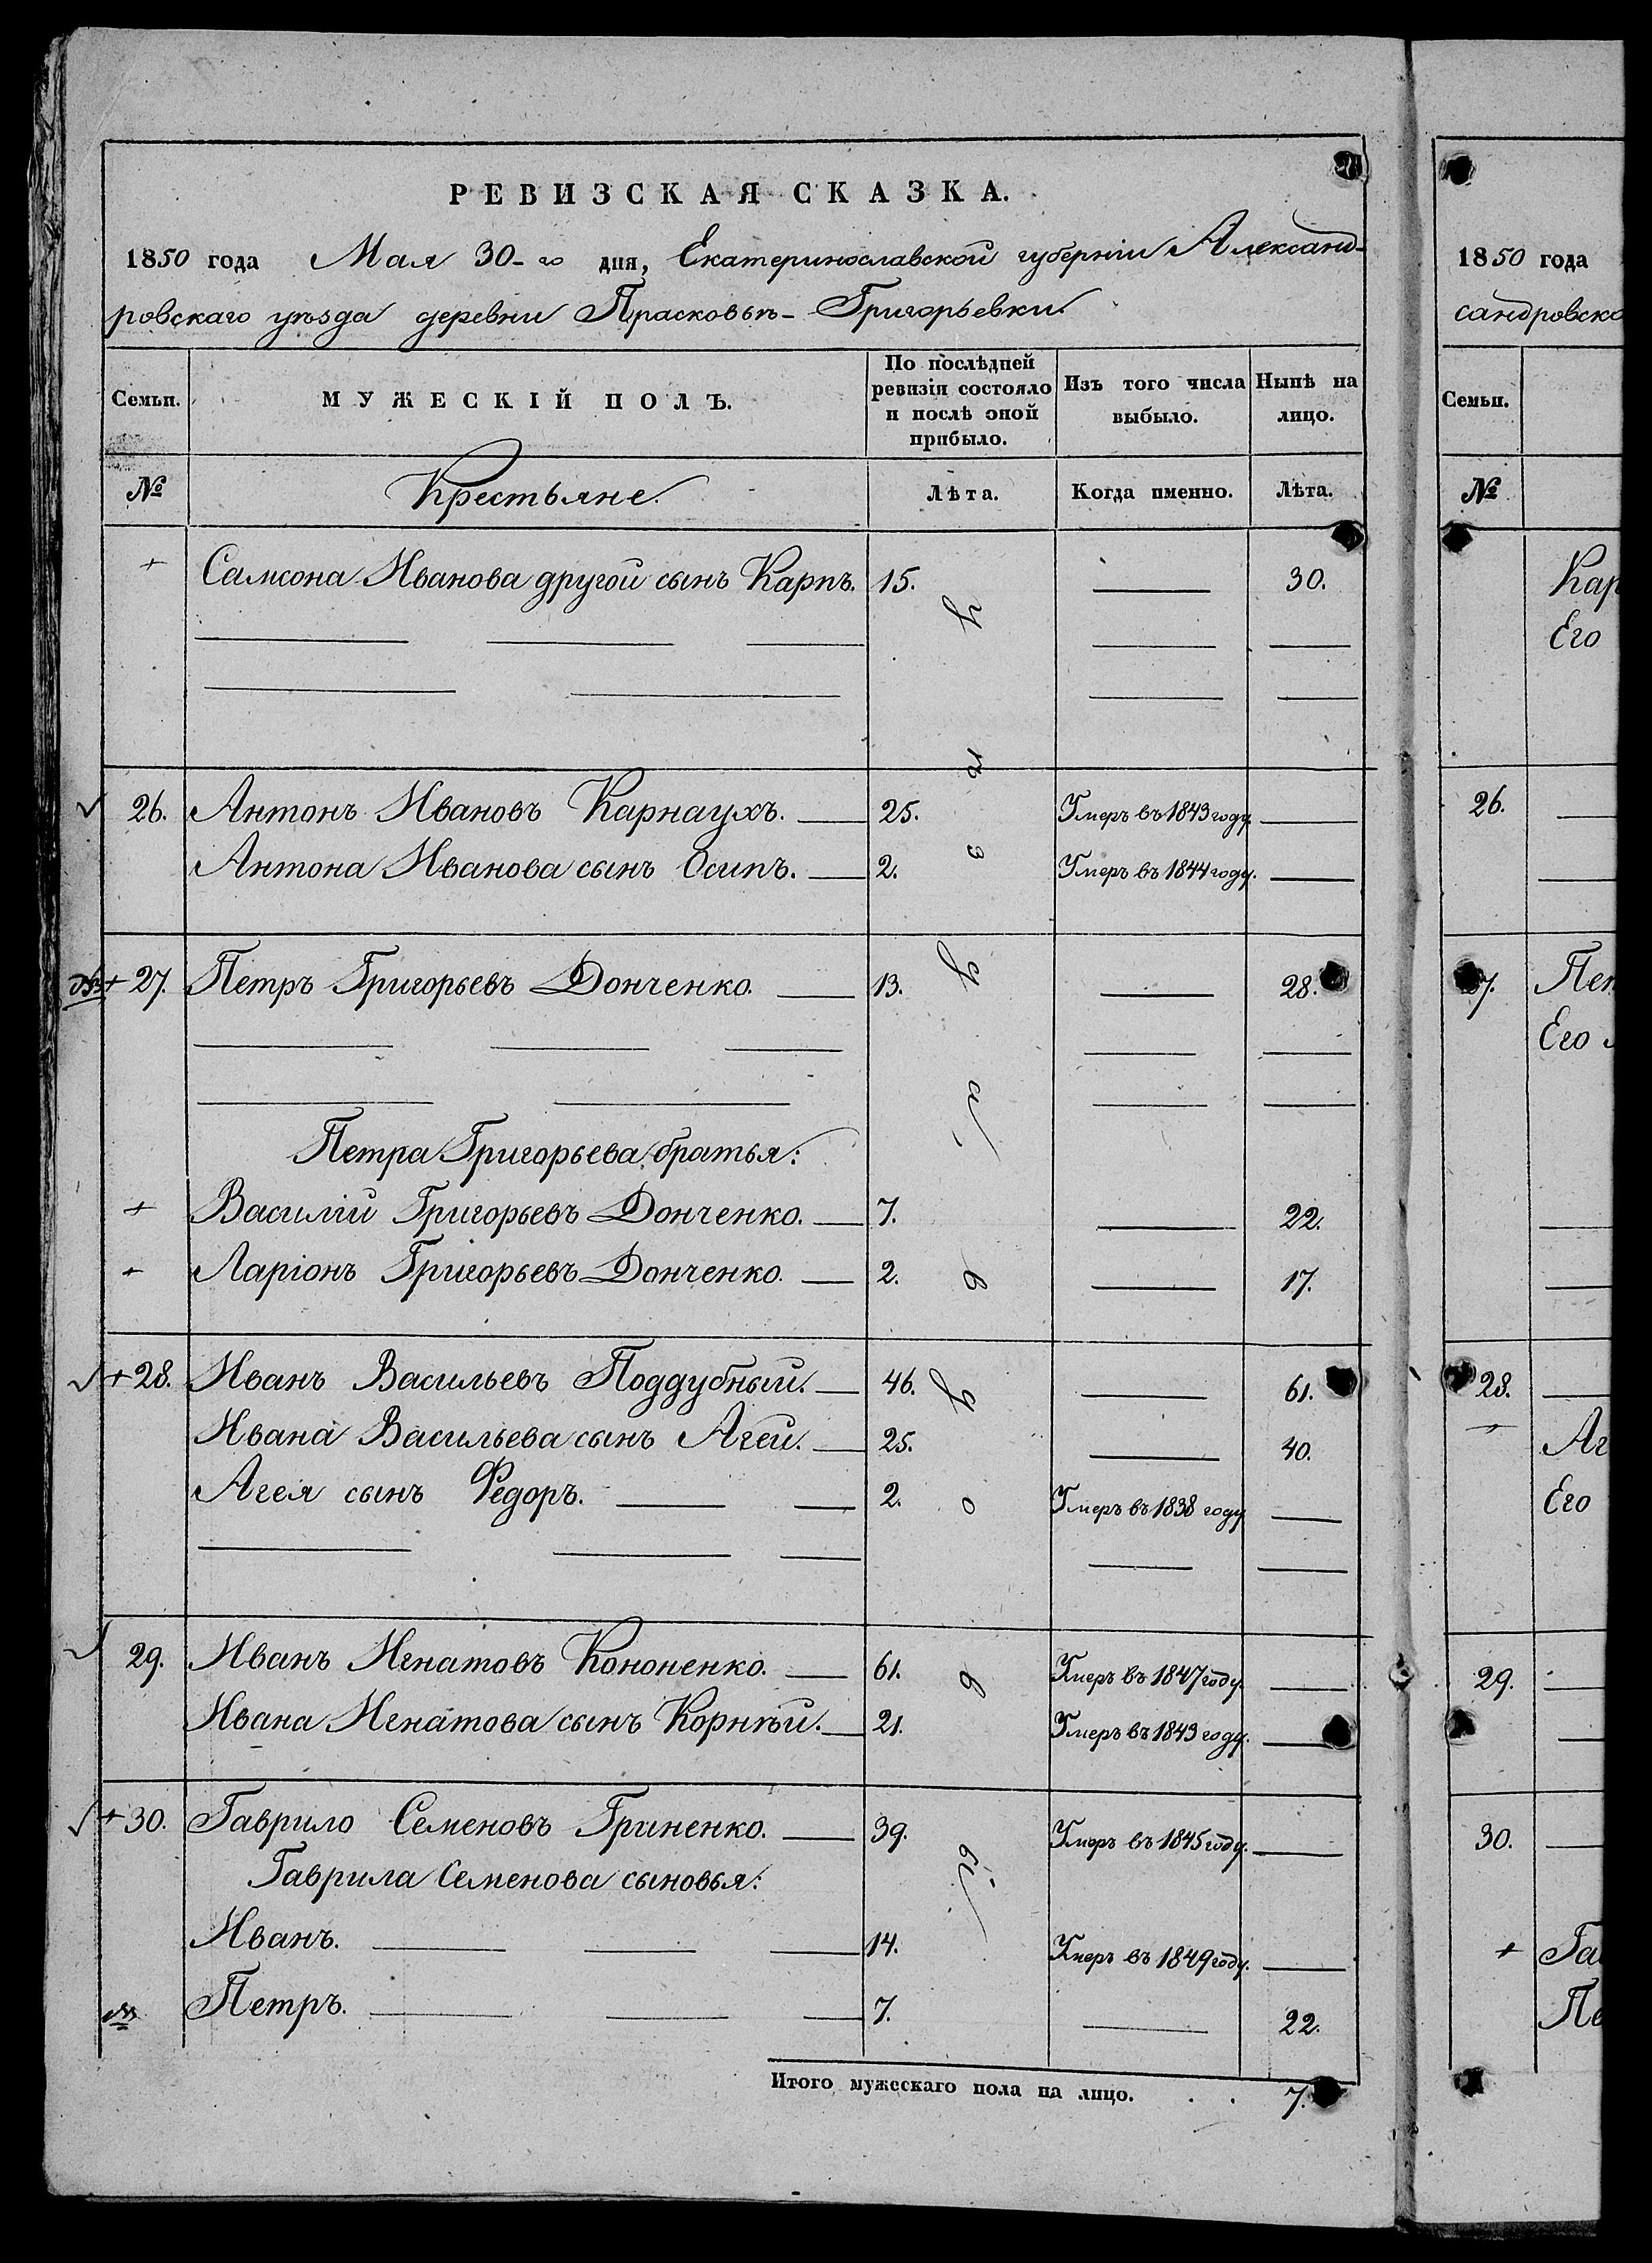 РЕВИЗСКАЯ СКАЗКА.
1850 года Мая 30-го дня, Екатеринославской губерніи Александ-
ровскаго уѣзда деревни Прасковѣ-Григорьевки.
Семьи. МУЖЕСКІЙ ПОЛЪ. По послѣдней ревизіи состояло и послѣ оной прибыло. Изъ того числа выбыло. Нынѣ на лицо.
№ Крестьяне. Лѣта. Когда именно. Лѣта.
+ Самсона Иванова другой сынъ Карпъ. 15. — 30.
26. Антонъ Ивановъ Карнаухъ. — 25. Умеръ въ 1843 году. —
Антона Иванова сынъ Осипъ. — 2. Умеръ въ 1844 году. —
+ 27. Петръ Григорьевъ Донченко. — 13. — 28.
Петра Григорьева братья:
+ Василій Григорьевъ Донченко. — 7. — 22.
+ Ларіонъ Григорьевъ Донченко. — 2. — 17.
+ 28. Иванъ Васильевъ Поддубный. — 46. — 61.
Ивана Васильева сынъ Агей. — 25. — 40.
Агея сынъ Федоръ. — 2. Умеръ въ 1838 году —
29. Иванъ Игнатовъ Кононенко. — 61. Умеръ въ 1847 году. —
Ивана Игнатова сынъ Корнѣй. — 21. Умеръ въ 1843 году. —
+ 30. Гаврило Семеновъ Гриненко. — 39. Умеръ въ 1845 году. —
Гаврила Семенова сыновья:
Иванъ. — 14. Умеръ въ 1849 году. —
Петръ. — 7. — 22.
Итого мужескаго пола на лицо. . . 7.
1850 года
сандровско
Семьи.
№
Кар
Его
26.
27. Пет
Его
28.
Аг
Его
29.
30.
+ Га
Пе